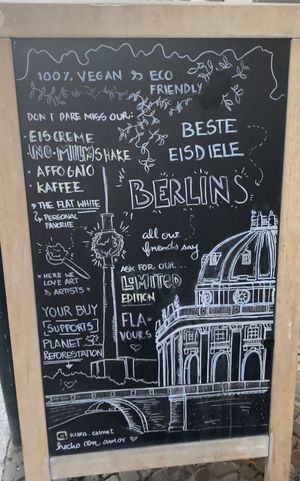 100% VEGAN & ECO
FRIENDLY
DON'T DARE MISS OUR:
· EISCREME
· NO-MILKSHAKE
· AFFOGATO
· KAFFEE
THE FLAT WHITE
PERSONAL
FAVORITE
BESTE
EISDIELE
BERLINS
all our
friends say
= HERE WE =
LOVE ART
& ARTISTS
ASK FOR OUR...
LIMITED
EDITION
FLA-
VOURS
YOUR BUY
SUPPORTS
PLANET
REFORESTATION
hecho con amor